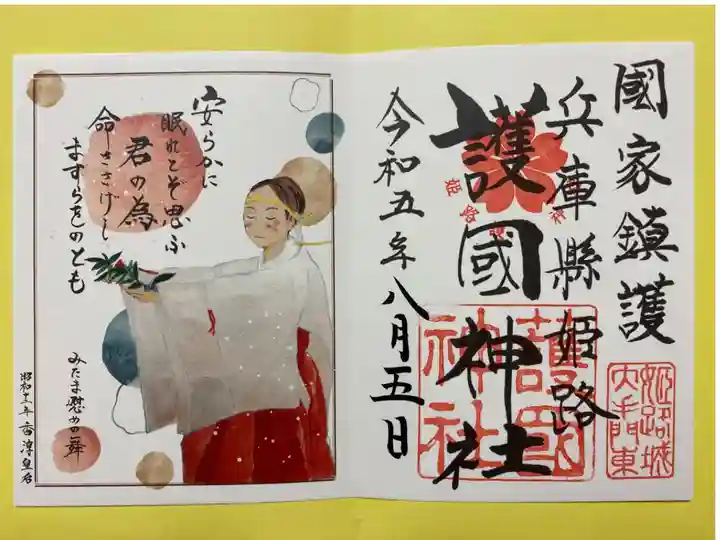 國家鎮護
兵庫縣姫路
護國神社
令和五年八月五日
護國
神社
姫路城
大手門東
安らかに
眠れとぞ思ふ
君の為
命ささげし
ますらをのとも
みたま慰めの舞
昭和十二年 香淳皇后